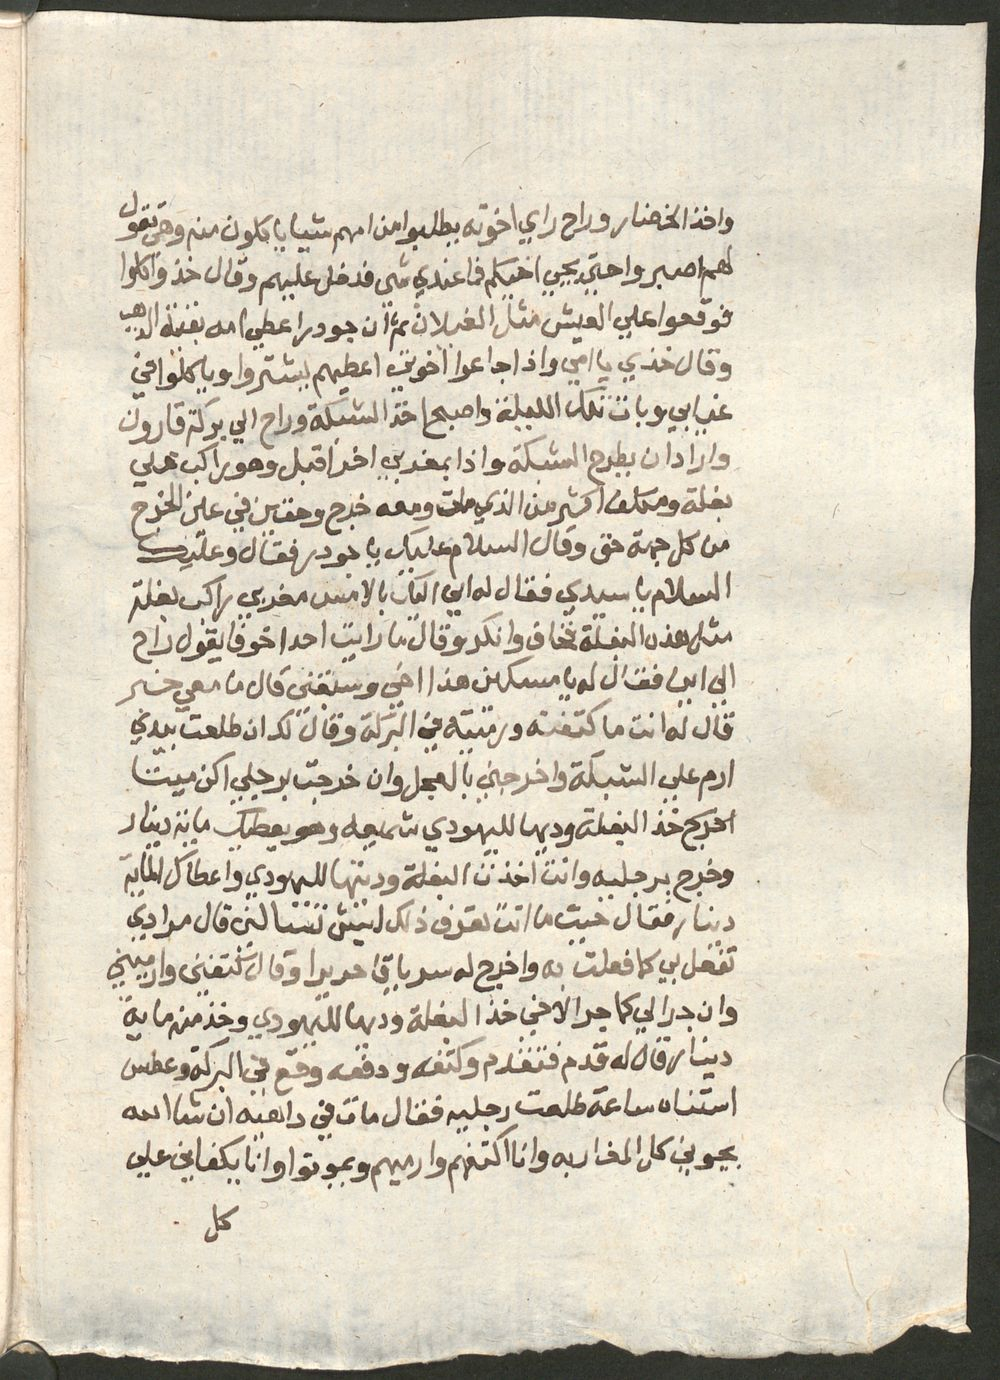 واخذ الخضار وراح راي اخوته يطلبوا من امهم شيا ياكلون منه وهي تقول
لهم اصبروا حتي يجي اخيكم فما عندي شي فدخل عليهم وقال خذوا كلوا
فوقعوا علي العيش مثل الغيلان ثم ان جودر اعطي امه بقية الدهب
وقال خذي يا امي واذا جاعوا اخوتي اعطيهم ليشتروا وياكلوا في
غيابي وبات تلك الليلة واصبح اخذ الشبكة وراح الي بركة قارون
واراد ان يطرح الشبكة واذا بمغربي اخر اقبل وهو راكب علي
بغلة ومكلف اكثر من الذي مات ومعه خرج وحقين في عين الخرج
من كل جهة حق وقال السلام عليك يا جودر فقال وعليك
السلام يا سيدي فقال له اي اتاك بالامس مغربي راكب بغلة
مثل هذه البغلة فخاف وانكر وقال ما رايت احدا خوفا يقول راح
الي اين فقال له يا مسكين هذا اخي وسبقني قال ما معي خبر
قال له انت ما كتفته ورميته في البركة وقال لك ان طلعت يدي
ارم علي الشبكة واخرجني بالعجل وان خرجت برجلي اكن ميتا
اخرج خذ البغلة وديها لليهودي شميعه وهو يعطيك ماية دينار
وخرج برجليه وانت اخذت البغلة وديتها لليهودي واعطاك الماية
دينار فقال حيث ما انت تعرف ذلك ليش تسالني قال مرادي
تفعل بي كما فعلت به واخرج له سرياقة حريرا وقال كتفني وارميني
وان جرالي كما جرا لاخي خذ البغلة وديها لليهودي وخذ منه ماية
دينار قال له قدم فتقدم وكتفه ودفعه وقع في البركة وغطس
استناه ساعة طلعت رجليه فقال مات في داهيه ان شا الله
يجوني كل المغاربه وانا اكتفهم وارميهم ويموتوا وانا يكفاني علي
كل